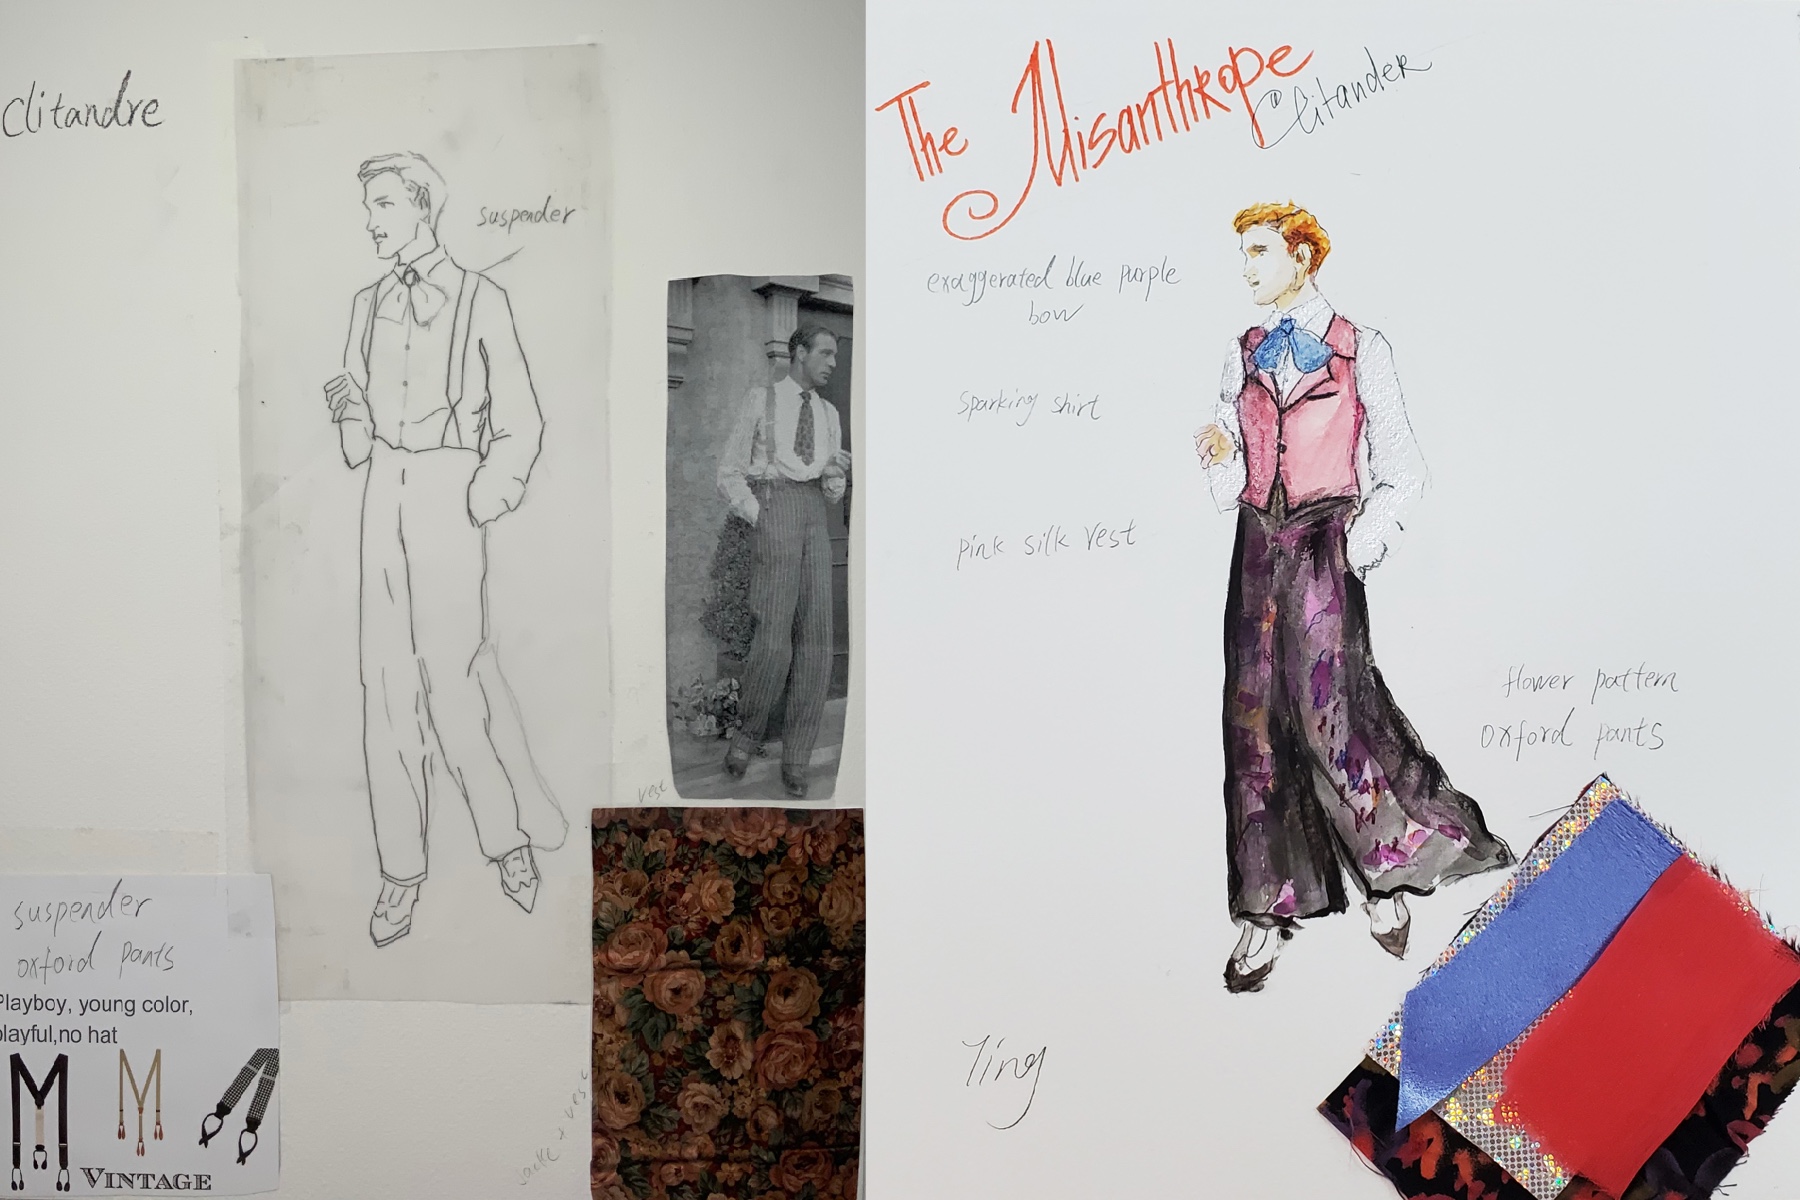 Clitandre
suspender
vest
suspender
oxford pants
Playboy, young color,
playful,no hat
VINTAGE
The Misanthrope
Clitander
exaggerated blue purple
bow
sparking shirt
pink silk vest
flower pattern
oxford pants
Ying